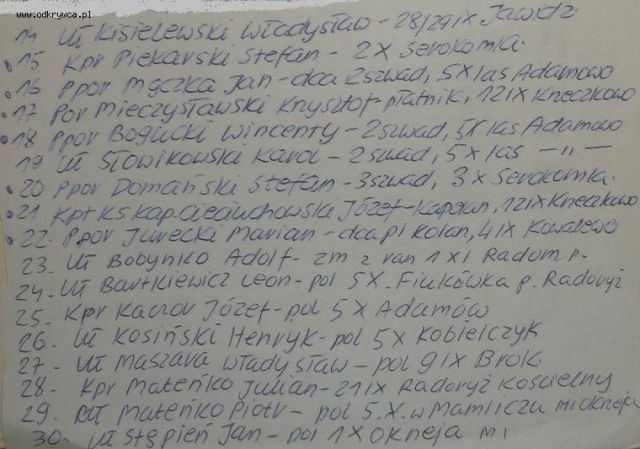 www.odkrywca.pl
Uł Kisielewski Władysław - 28/29 IX Jawidz
15 Kpr Piekarski Stefan - 2 X Serokomla.
16 Ppor Mączka Jan - dca 2 szwad, 5 X las Adamowo
17 Por Mieczysławski Krzysztof - płatnik, 12 IX Kneczkowo
18 Ppor Bogucki Wincenty - 2 szwad, 5 X las Adamowo
19 Uł Słowikowski Karol - 2 szwad, 5 X las - „ -
20 Ppor Domański Stefan - 3 szwad, 3 X Serokomla.
21 Kpt Ks Kap. Cieciuchowski Józef - Kapelan, 12 IX Kneczkowo
22. Ppor Jurecki Marian - dca pl Kolan, 4 IX Kowalewo
23. Uł Bobynko Adolf - zm z ran 1 XI Radom p.
24. Uł Bartkiewicz Leon - pol 5 X. Fiukówka p. Radoryż
25. Kpr Kaczor Józef - pol 5 X Adamów
26. Uł Kosiński Henryk - pol 5 X Kobielczyk
27 - Uł Maszava Władysław - pol 9 IX Brok
28. Kpr Mateńko Julian - 21 IX Radoryż Kościelny
29. Uł Mateńko Piotr - pol 5. X. w Mamliczu m Okrzeja
30. Uł Stępień Jan - pol 1 X Okrzeja m